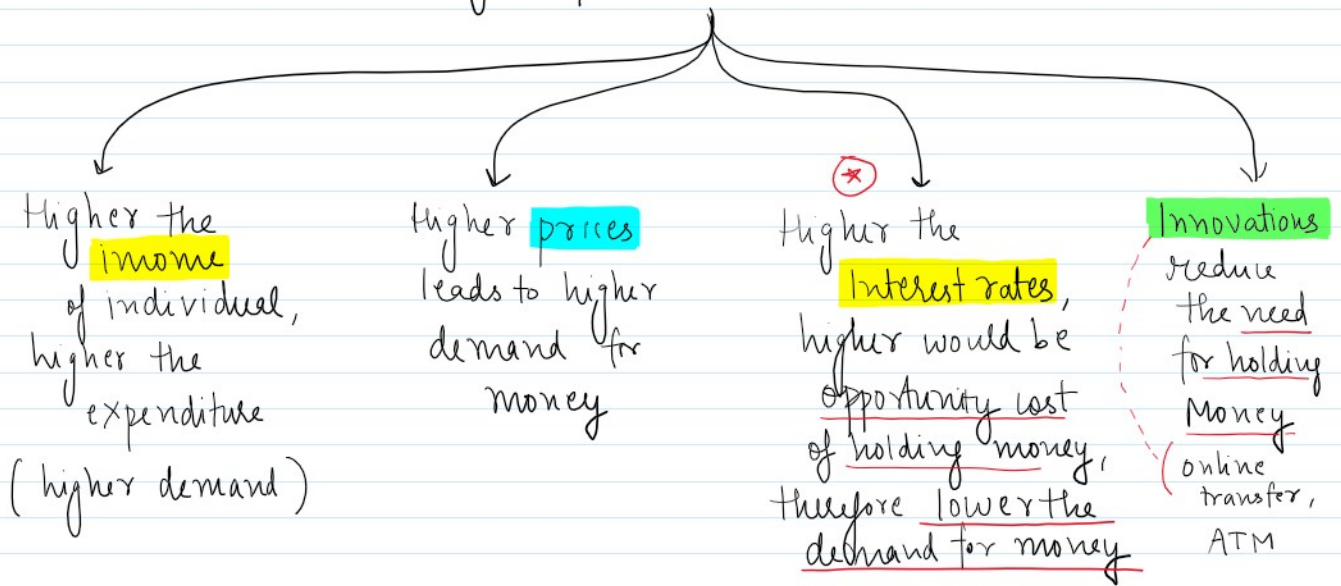 Higher the
income
of individual,
higher the
expenditure
(higher demand)
Higher prices
leads to higher
demand for
money
Higher the
Interest rates,
higher would be
opportunity cost
of holding money,
therefore lower the
demand for money
Innovations
reduce
the need
for holding
Money
(online
transfer,
ATM